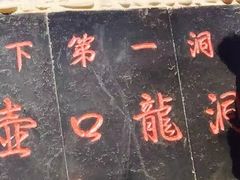 下第一洞
壺口龍洞